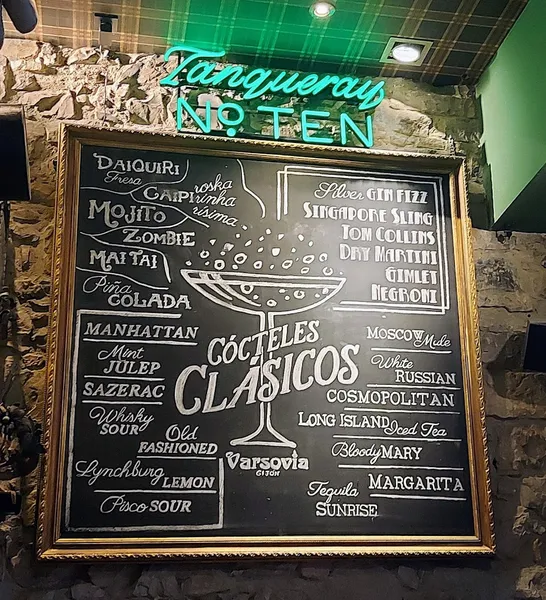 Tanqueray
Nº TEN
DAIQUIRI
Fresa
CAIPI roska
rinha
rísima
MOJITO
ZOMBIE
MAI TAI
Piña
COLADA
MANHATTAN
Mint
JULEP
SAZERAC
Whisky
SOUR
Old
FASHIONED
Lynchburg
LEMON
Pisco SOUR
CÓCTELES
CLÁSICOS
Varsovia
GIJÓN
Silver GIN FIZZ
SINGAPORE SLING
TOM COLLINS
DRY MARTINI
GIMLET
NEGRONI
MOSCOW Mule
White
RUSSIAN
COSMOPOLITAN
LONG ISLAND Iced Tea
Bloody MARY
MARGARITA
Tequila
SUNRISE